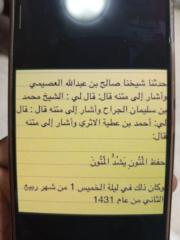 حدثنا شيخنا صالح بن عبدالله العصيمي
وأشار إلى متنه قال: قال لي : الشيخ محمد
بن سليمان الجراح وأشار إلى متنه قال: قال
لي: أحمد بن عطية الاثري وأشار إلى متنه
قال:
حفظ المُتونِ يَشدُّ المتُونَ
وكان ذلك في ليلة الخميس 1 من شهر ربيع
الثاني من عام 1431